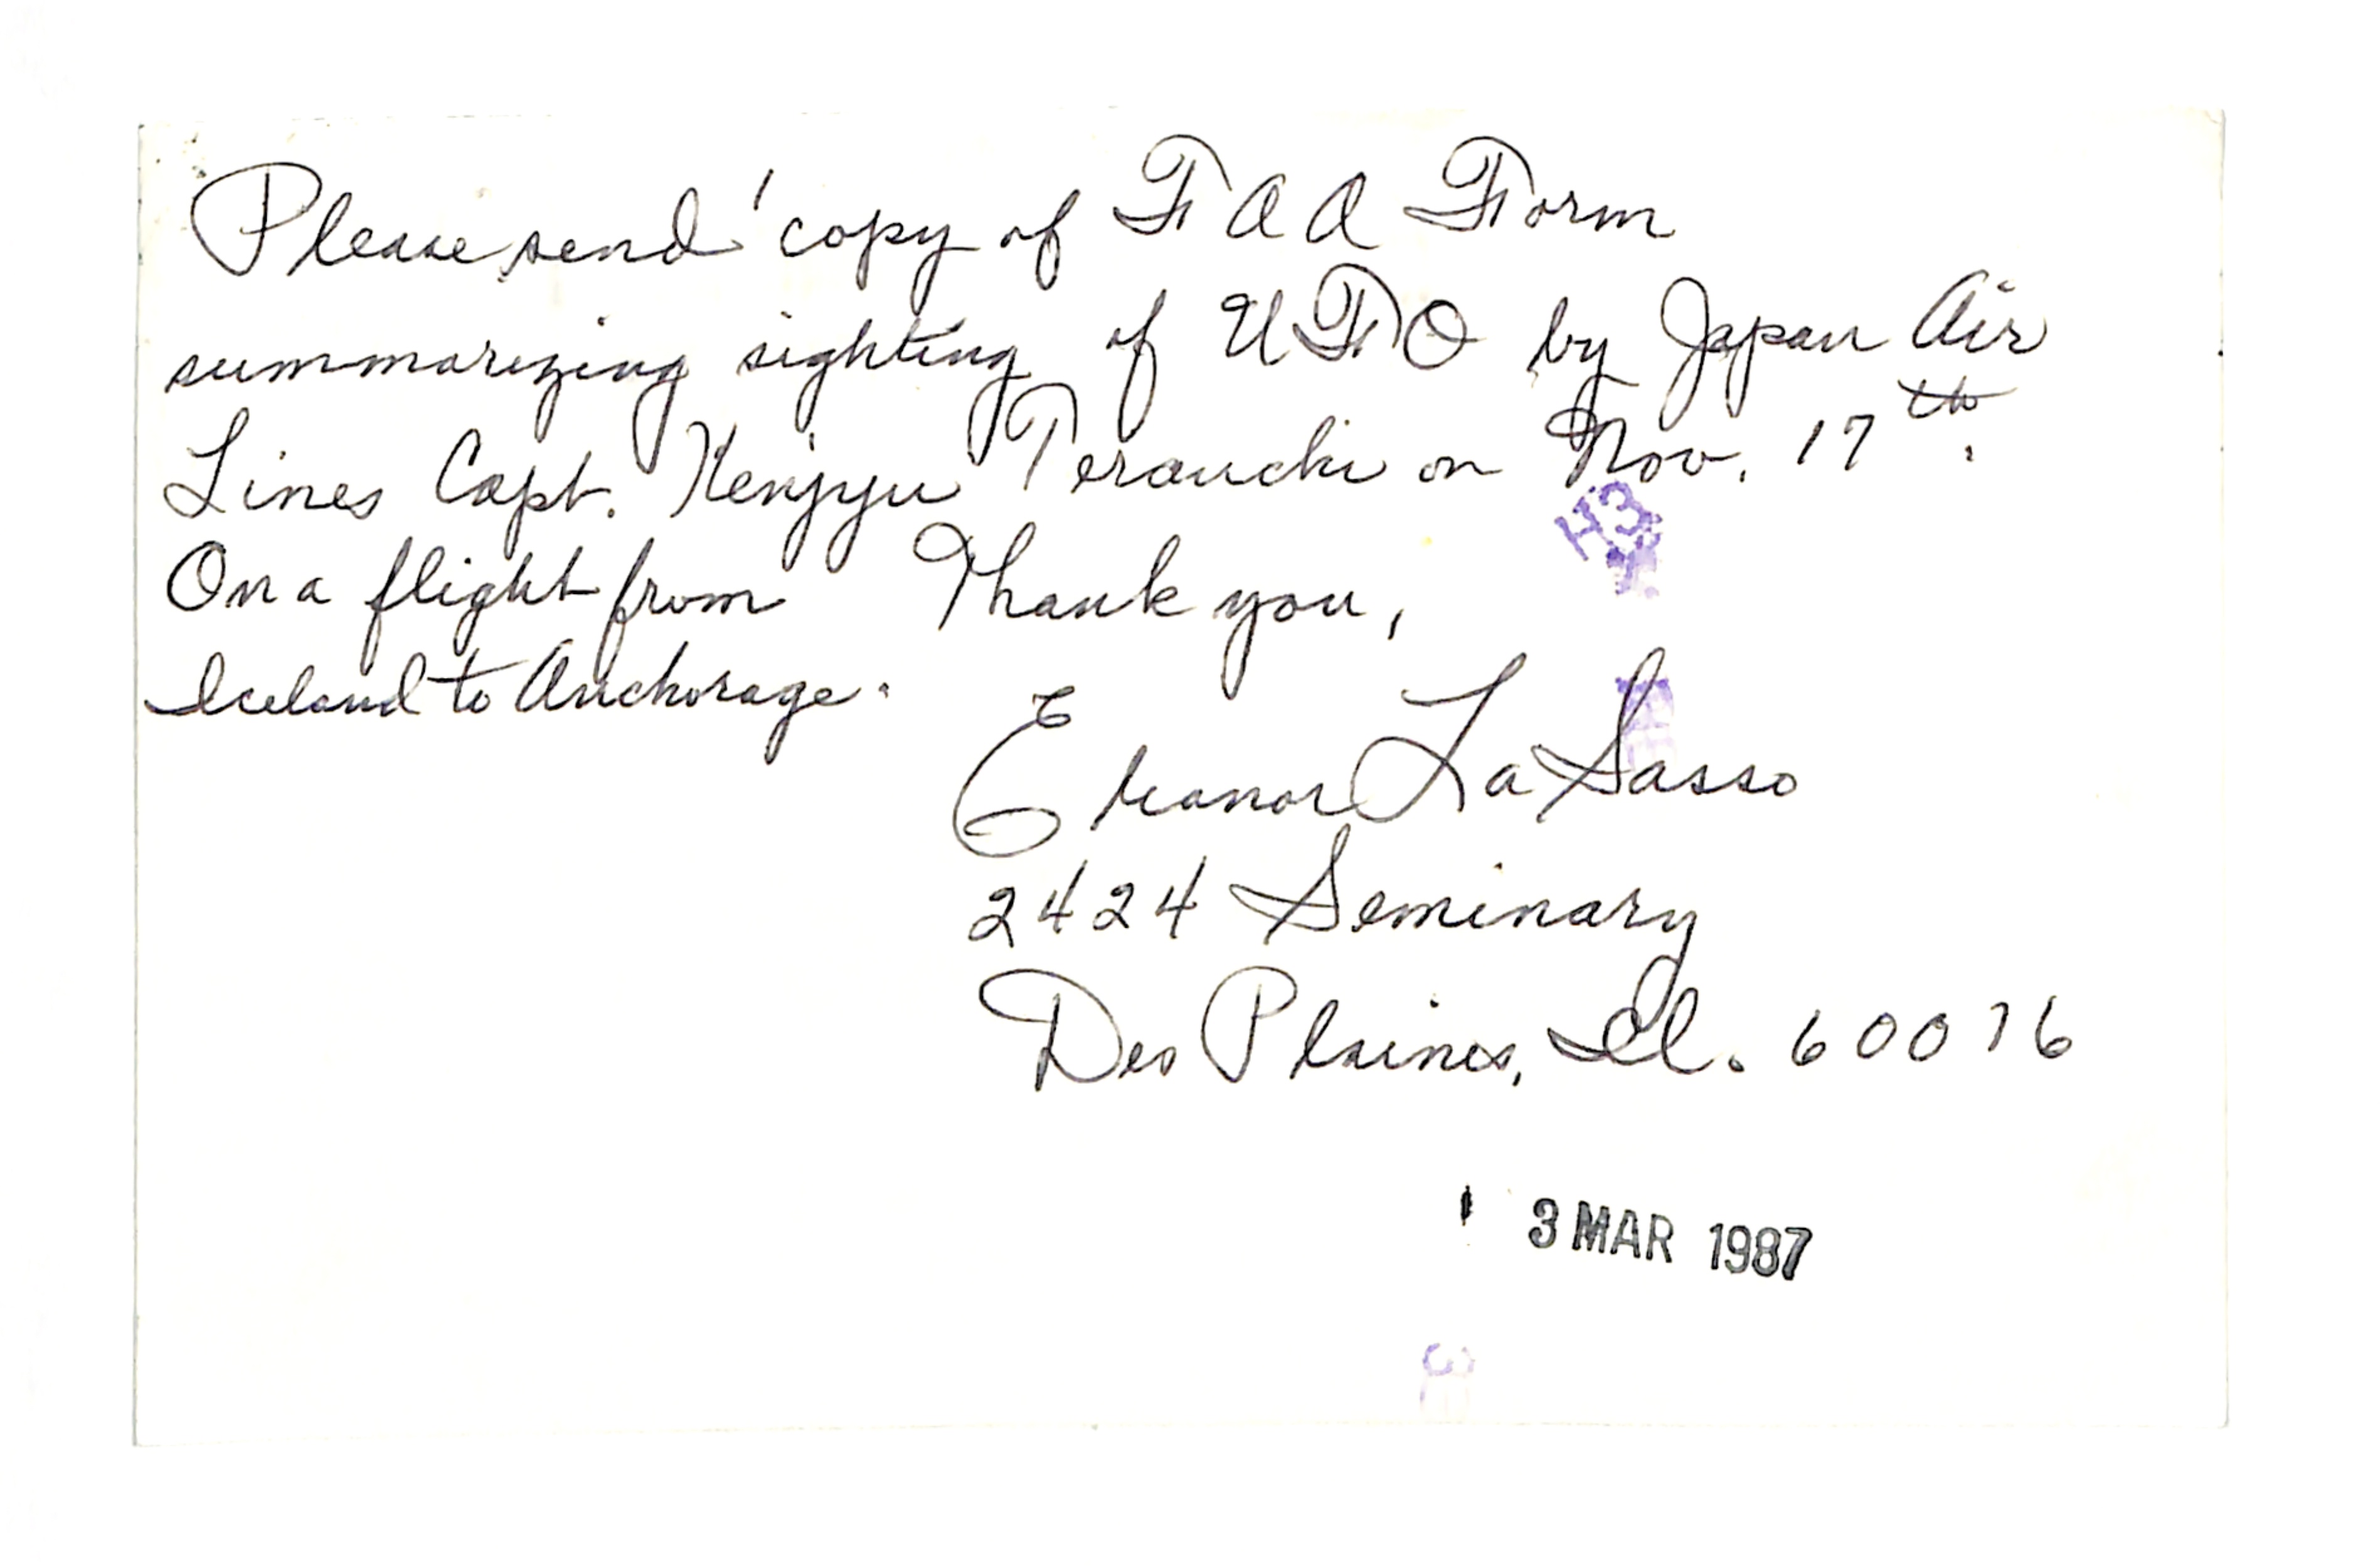 Please send 1 copy of FAA Form
summarizing sighting of UFO by Japan Air
Lines Capt. Kenjyu Terauchi on Nov. 17th.
On a flight from
Iceland to Anchorage.
Thank you,
Eleanor La Sasso
2424 Seminary
Des Plaines, Il. 60016
3 MAR 1987